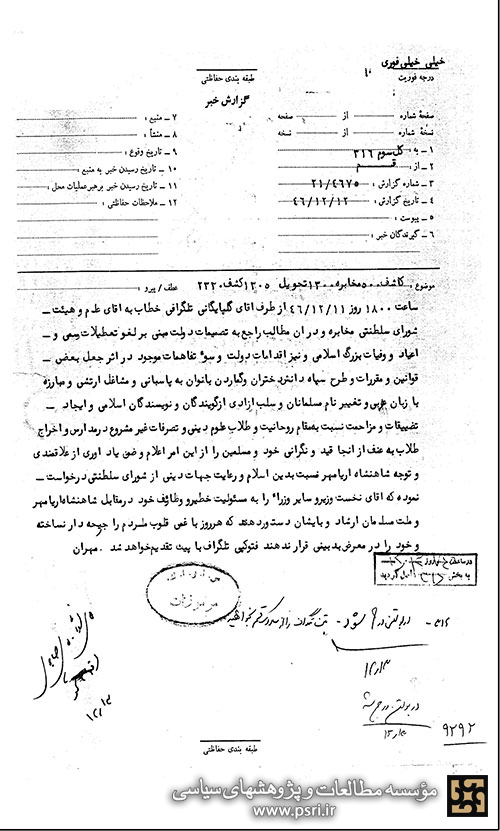 خیلی خیلی فوری
درجه فوریت
طبقه بندی حفاظتی
گزارش خبر
صفحهٔ شماره از صفحه
نسخهٔ شماره از نسخه
۱ ـ به : کل سوم ۳۱۶
۲ ـ از : قم
۳ ـ شماره گزارش : ۲۱/۴۶۷۵
۴ ـ تاریخ گزارش : ۴۶/۱۲/۱۲
۵ ـ پیوست :
۶ ـ گیرندگان خبر :
۷ ـ منبع :
۸ ـ منشأ :
۹ ـ تاریخ وقوع :
۱۰ ـ تاریخ رسیدن خبر به منبع :
۱۱ ـ تاریخ رسیدن خبر برهبر عملیات محل :
۱۲ ـ ملاحظات حفاظتی :
موضوع : کاشف ۵۰۰ مخابره ۱۳۰۰ تحویل ۱۳۰۵ کشف ۲۳۲۰ عطف / پیرو :
ساعت ۱۸۰۰ روز ۴۶/۱۲/۱۱ از طرف اقای گلپایگانی تلگرافی خطاب به اقای علم و هیئت ـ
شورای سلطنتی مخابره و در ان مطالب راجع به تصمیمات دولت مبنی بر لغو تعطیلات رسمی و ـ
اعیاد و وفیات بزرگ اسلامی و نیز اقدامات دولت و سوء تفاهمات موجود در اثر جعل بعضی ـ
قوانین و مقررات و طرح سپاه دانش دختران و گماردن بانوان به پاسبانی و مشاغل ارتشی و مبارزه
با زبان عربی و تغییر نام مسلمانان و سلب ازادی از گویندگان و نویسندگان اسلامی و ایجاد ـ
تضییقات و مزاحمت نسبت به مقام روحانیت و طلاب علوم دینی و تصرفات غیر مشروع در مدارس و اخراج
طلاب به عنف از انجا قید و نگرانی خود و مسلمین را از این امر اعلام و ضمن یاد اوری از علاقمندی
و توجه شاهنشاه اریامهر نسبت بدین اسلام و رعایت جهات دینی از شورای سلطنتی درخواست ـ
نموده که اقای نخست وزیر و سایر وزراء را به مسئولیت خطیر و وظائف خود در مقابل شاهنشاه اریامهر
و ملت مسلمان ارشاد و بایشان دستور دهند که هر روز با غمی قلوب مردم را جریحه دار نساخته
و خود را در معرض بدبینی قرار ندهند فتوکپی تلگراف با پیک تقدیم خواهد شد . مهران
رمز شد
در بولتن درج شود
۱۲/۱۳
در بولتن درج شد
۱۲/۱۳
۹۲۹۲
طبقه بندی حفاظتی
مؤسسه مطالعات و پژوهشهای سیاسی
www.psri.ir